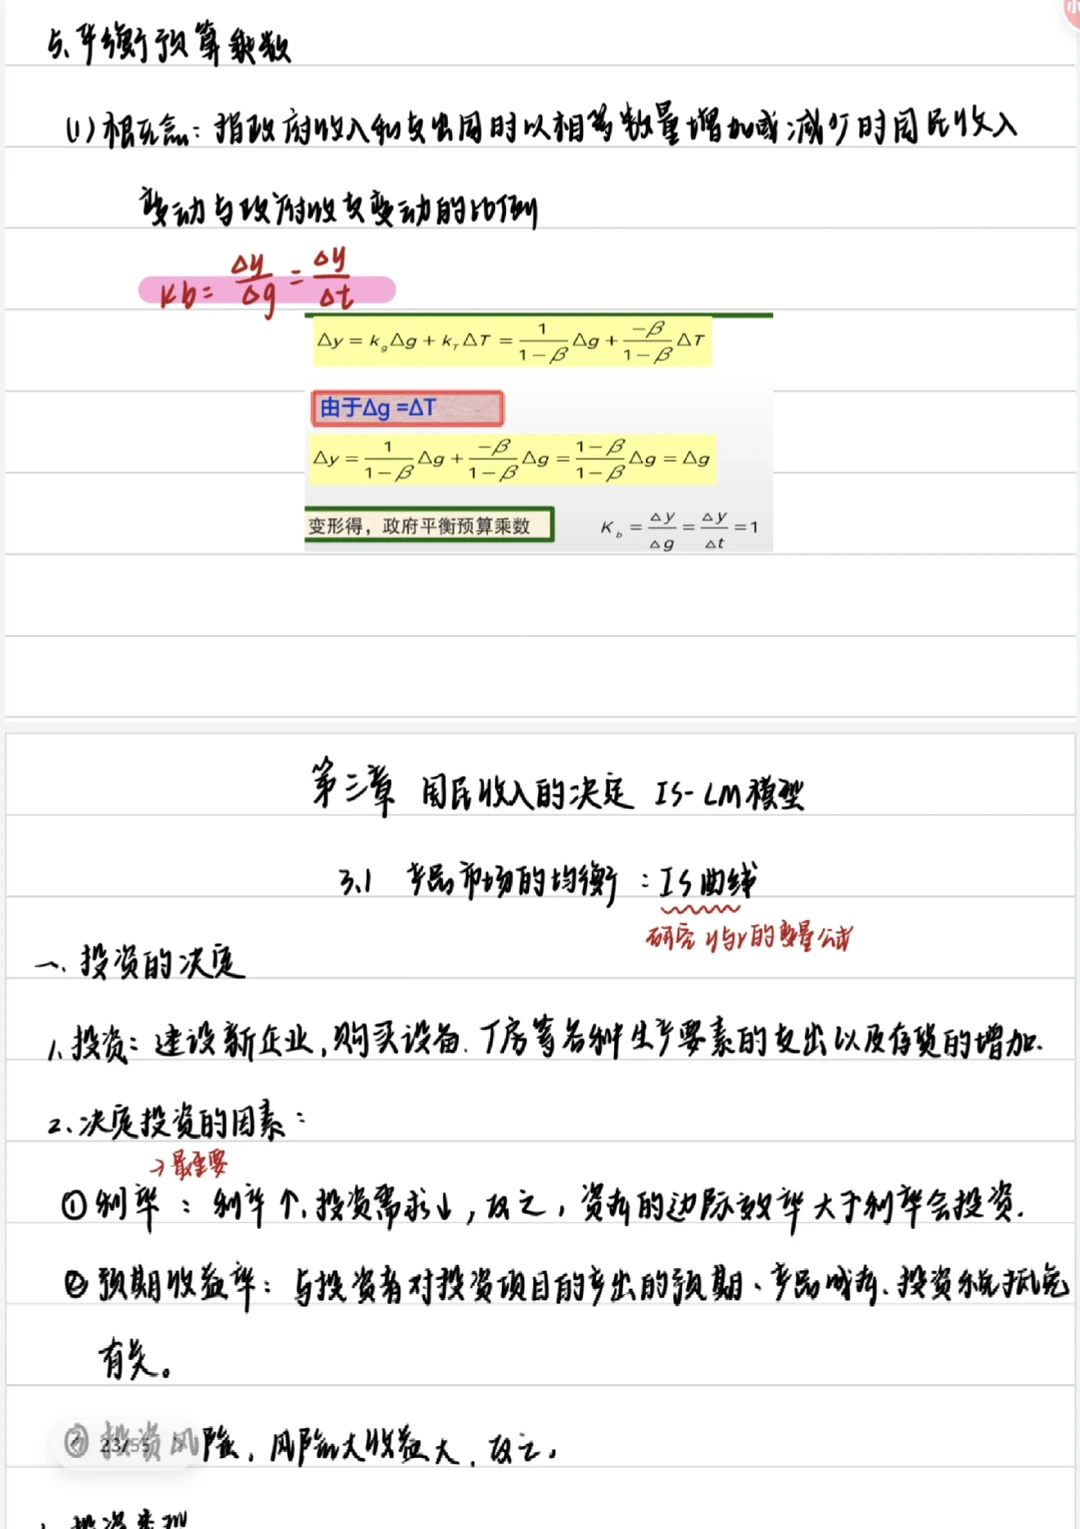 5、平衡预算乘数
(1)概念：指政府收入和支出同时以相等数量增加或减少时国民收入
变动与政府收支变动的比例
Kb = Δy/Δg = Δy/Δt
Δy = k_g Δg + k_T ΔT = 1/(1-β) Δg + -β/(1-β) ΔT
由于Δg =ΔT
Δy = 1/(1-β) Δg + -β/(1-β) Δg = (1-β)/(1-β) Δg = Δg
变形得，政府平衡预算乘数 K_b = Δy/Δg = Δy/Δt = 1
第三章 国民收入的决定 IS-LM模型
3.1 产品市场的均衡：IS曲线
研究y与r的变量公式
一、投资的决定
1、投资：建设新企业,购买设备、厂房等各种生产要素的支出以及存货的增加.
2、决定投资的因素：
→最重要
①利率：利率↑,投资需求↓,反之,资本的边际效率大于利率会投资.
②预期收益率：与投资者对投资项目的产出的预期、产品成本、投资税抵免
有关。
③投资风险,风险大收益大,反之。
23/55